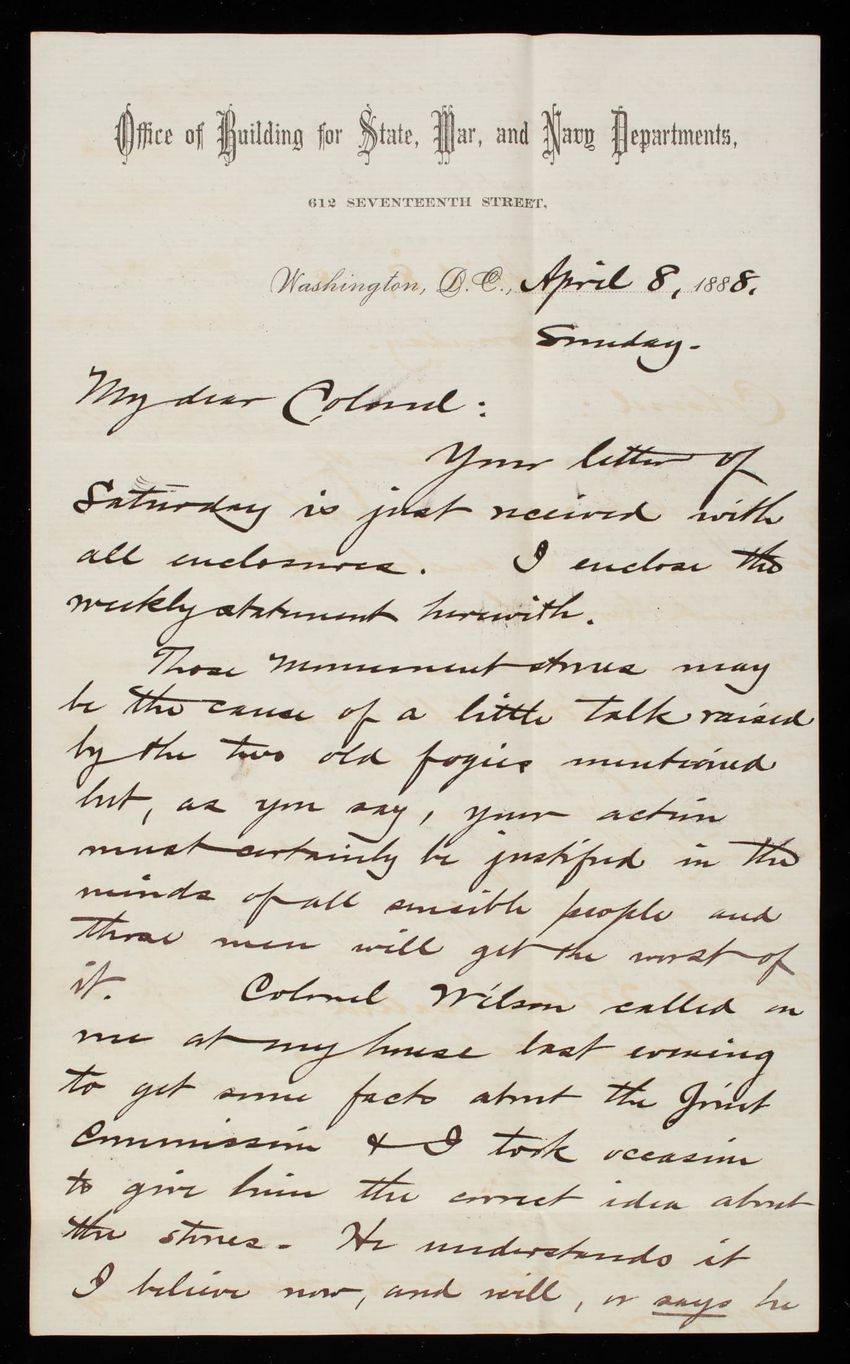 Office of Building for State, War, and Navy Departments,
612 SEVENTEENTH STREET,
Washington, D.C., April 8, 1888.
Sunday.
My dear Colonel:
Your letter of
Saturday is just received with
all enclosures. I enclose the
weekly statement herewith.
Those Monument stones may
be the cause of a little talk raised
by the two old fogies mentioned
but, as you say, your action
must certainly be justified in the
minds of all sensible people and
those men will get the worst of
it. Colonel Wilson called on
me at my house last evening
to get some facts about the Joint
Commission & I took occasion
to give him the correct idea about
the stones. He understands it
I believe now, and will, or says he